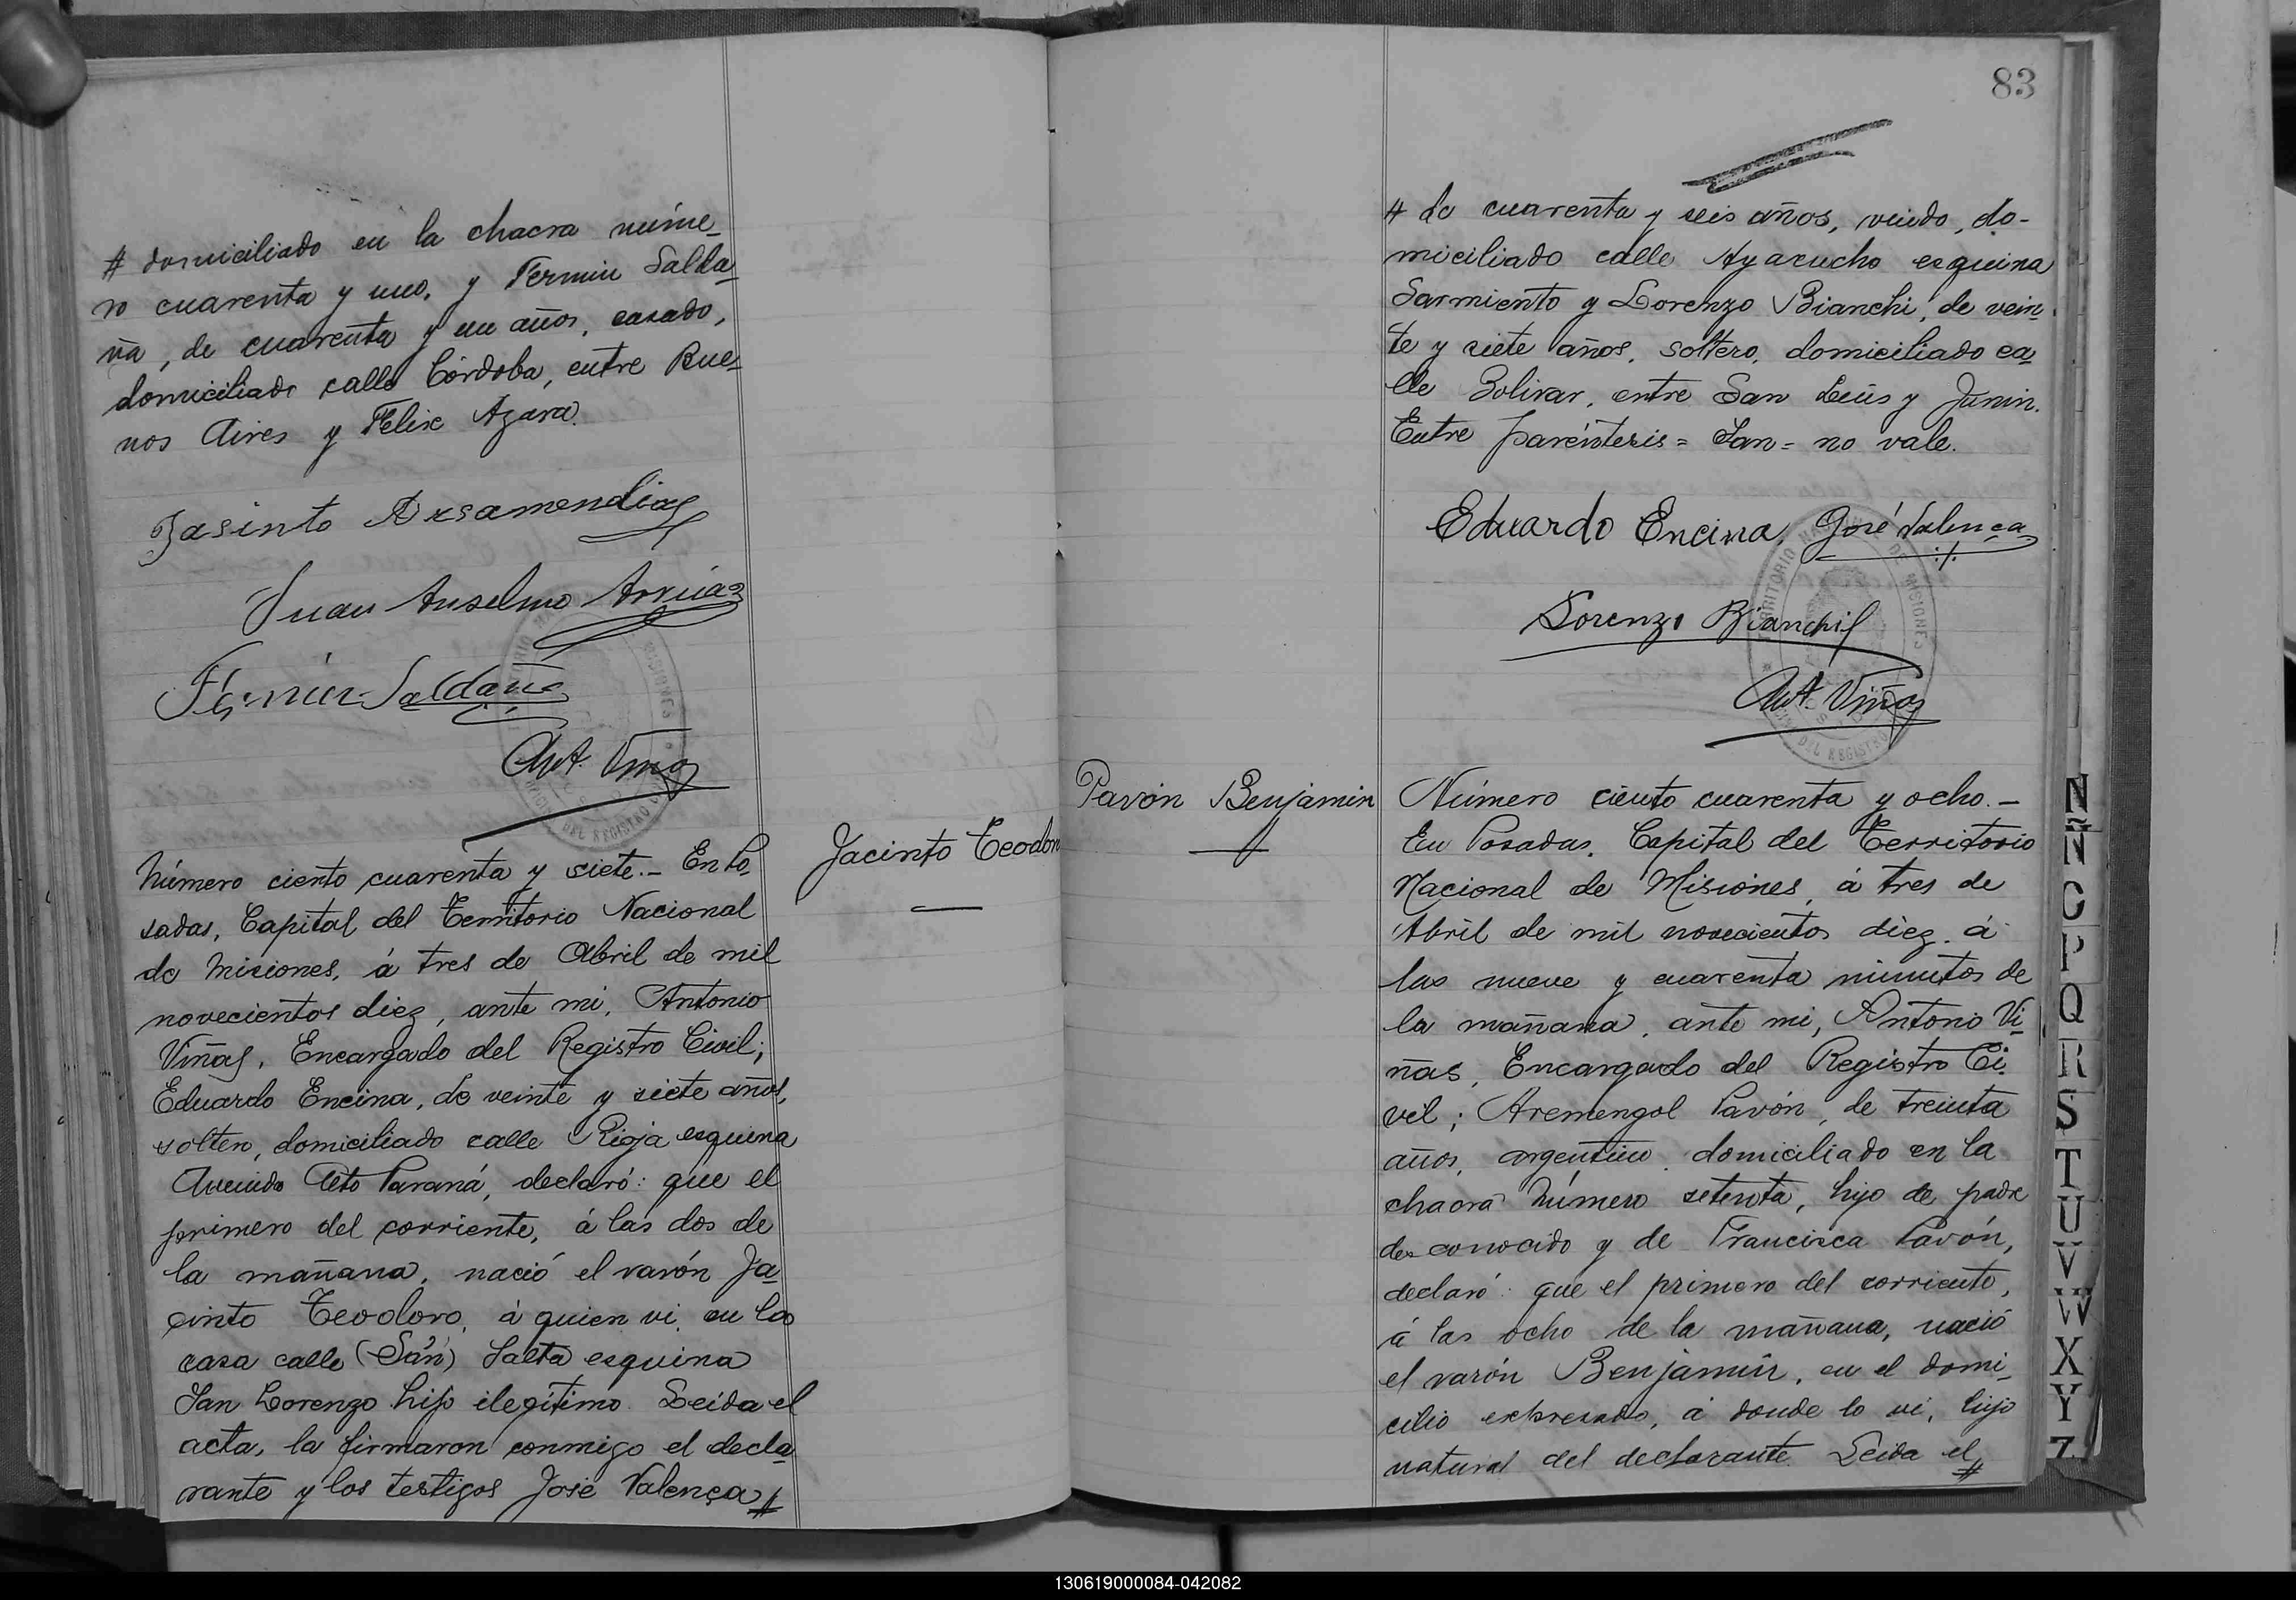 # domiciliado en la chacra núme_
ro cuarenta y uno, y Fermin Salda_
ña, de cuarenta y un años, casado,
domiciliado calle Córdoba, entre Bue_
nos Aires y Felix Azara.
Jasinto Arsamendia
Juan Anselmo Arrúa
Fermin Saldaña
Ant. Viñas
Número ciento cuarenta y siete._ En Po_
sadas, Capital del Territorio Nacional
de Misiones, á tres de Abril de mil
novecientos diez, ante mi, Antonio
Viñas, Encargado del Registro Civil;
Eduardo Encina, de veinte y siete años,
soltero, domiciliado calle Rioja esquina
Avenida Alto Paraná, declaró: que el
primero del corriente, á las dos de
la mañana, nació el varón Ja_
cinto Teodoro, á quien vi, en la
casa calle (San) Salta esquina
San Lorenzo hijo ilegítimo. Leida el
acta, la firmaron conmigo el decla_
rante y los testigos José Valença #
Jacinto Teodoro
83
# de cuarenta y seis años, viudo, do-
miciliado calle Ayacucho esquina
Sarmiento y Lorenzo Bianchi, de vein_
te y siete años, soltero, domiciliado ca_
lle Bolivar, entre San Luis y Junin.
Entre paréntesis = San = no vale.
Eduardo Encina, José Valença
Lorenzo Bianchi
Ant. Viñas
TERRITORIO NACIONAL DE MISIONES
DEL REGISTRO
Pavón Benjamin
Número ciento cuarenta y ocho._
En Posadas, Capital del Territorio
Nacional de Misiones, á tres de
Abril de mil novecientos diez, á
las nueve y cuarenta minutos de
la mañana, ante mi, Antonio Vi_
ñas, Encargado del Registro Ci_
vil; Aremengol Pavón, de treinta
años, argentino, domiciliado en la
chacra número setenta, hijo de padre
desconocido y de Francisca Pavón,
declaró: que el primero del corriente,
á las ocho de la mañana, nació
el varón Benjamin, en el domi_
cilio expresado, á donde lo vi, hijo
natural del declarante. Leida el #
N
Ñ
O
P
Q
R
S
T
U
V
W
X
Y
Z
130619000084-042082